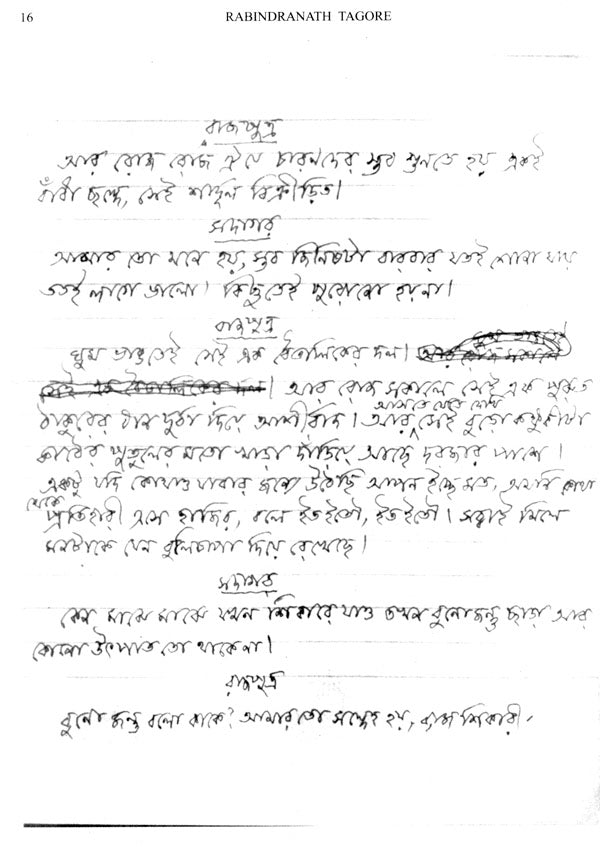 16
RABINDRANATH TAGORE
রাজপুত্র
আর রোজ রোজ ঐ যে চারণদের স্তব শুনতে হয় একই
বাঁধা ছন্দে, সেই শার্দূল বিক্রীড়িত।
সদাগর
আমার তো মনে হয়, স্তব জিনিষটা বারবার যতই শোনা যায়
ততই লাগে ভালো। কিছুতেই পুরোনো হয় না।
রাজপুত্র
ঘুম ভাঙতেই সেই এক বৈতালিকের দল।
আর রোজ সকালে সেই এক পুরুত
ঠাকুরের ধান দুর্ব্বা দিয়ে আশীর্বাদ। আর আসতে যেতে দেখি সেই বুড়ো কঞ্চুকীটা
কাঠের পুতুলের মতো খাড়া দাঁড়িয়ে আছে দরজার পাশে।
একটু যদি কোথাও যাবার জন্যে উঠেছি আপন ইচ্ছে মত, অমনি কোথা
থেকে প্রতিহারী এসে হাজির, বলে ইতইতৌ, ইতইতৌ। সব্বাই মিলে
মনটাকে যেন বুলিচাপা দিয়ে রেখেছে।
সদাগর
কেন মাঝে মাঝে যখন শিকারে যাও তখন বুনোজন্তু ছাড়া আর
কোনো উৎপাত তো থাকে না।
রাজপুত্র
বুনো জন্তু বলো কাকে? আমার তো সন্দেহ হয়, রাজ শিকারী